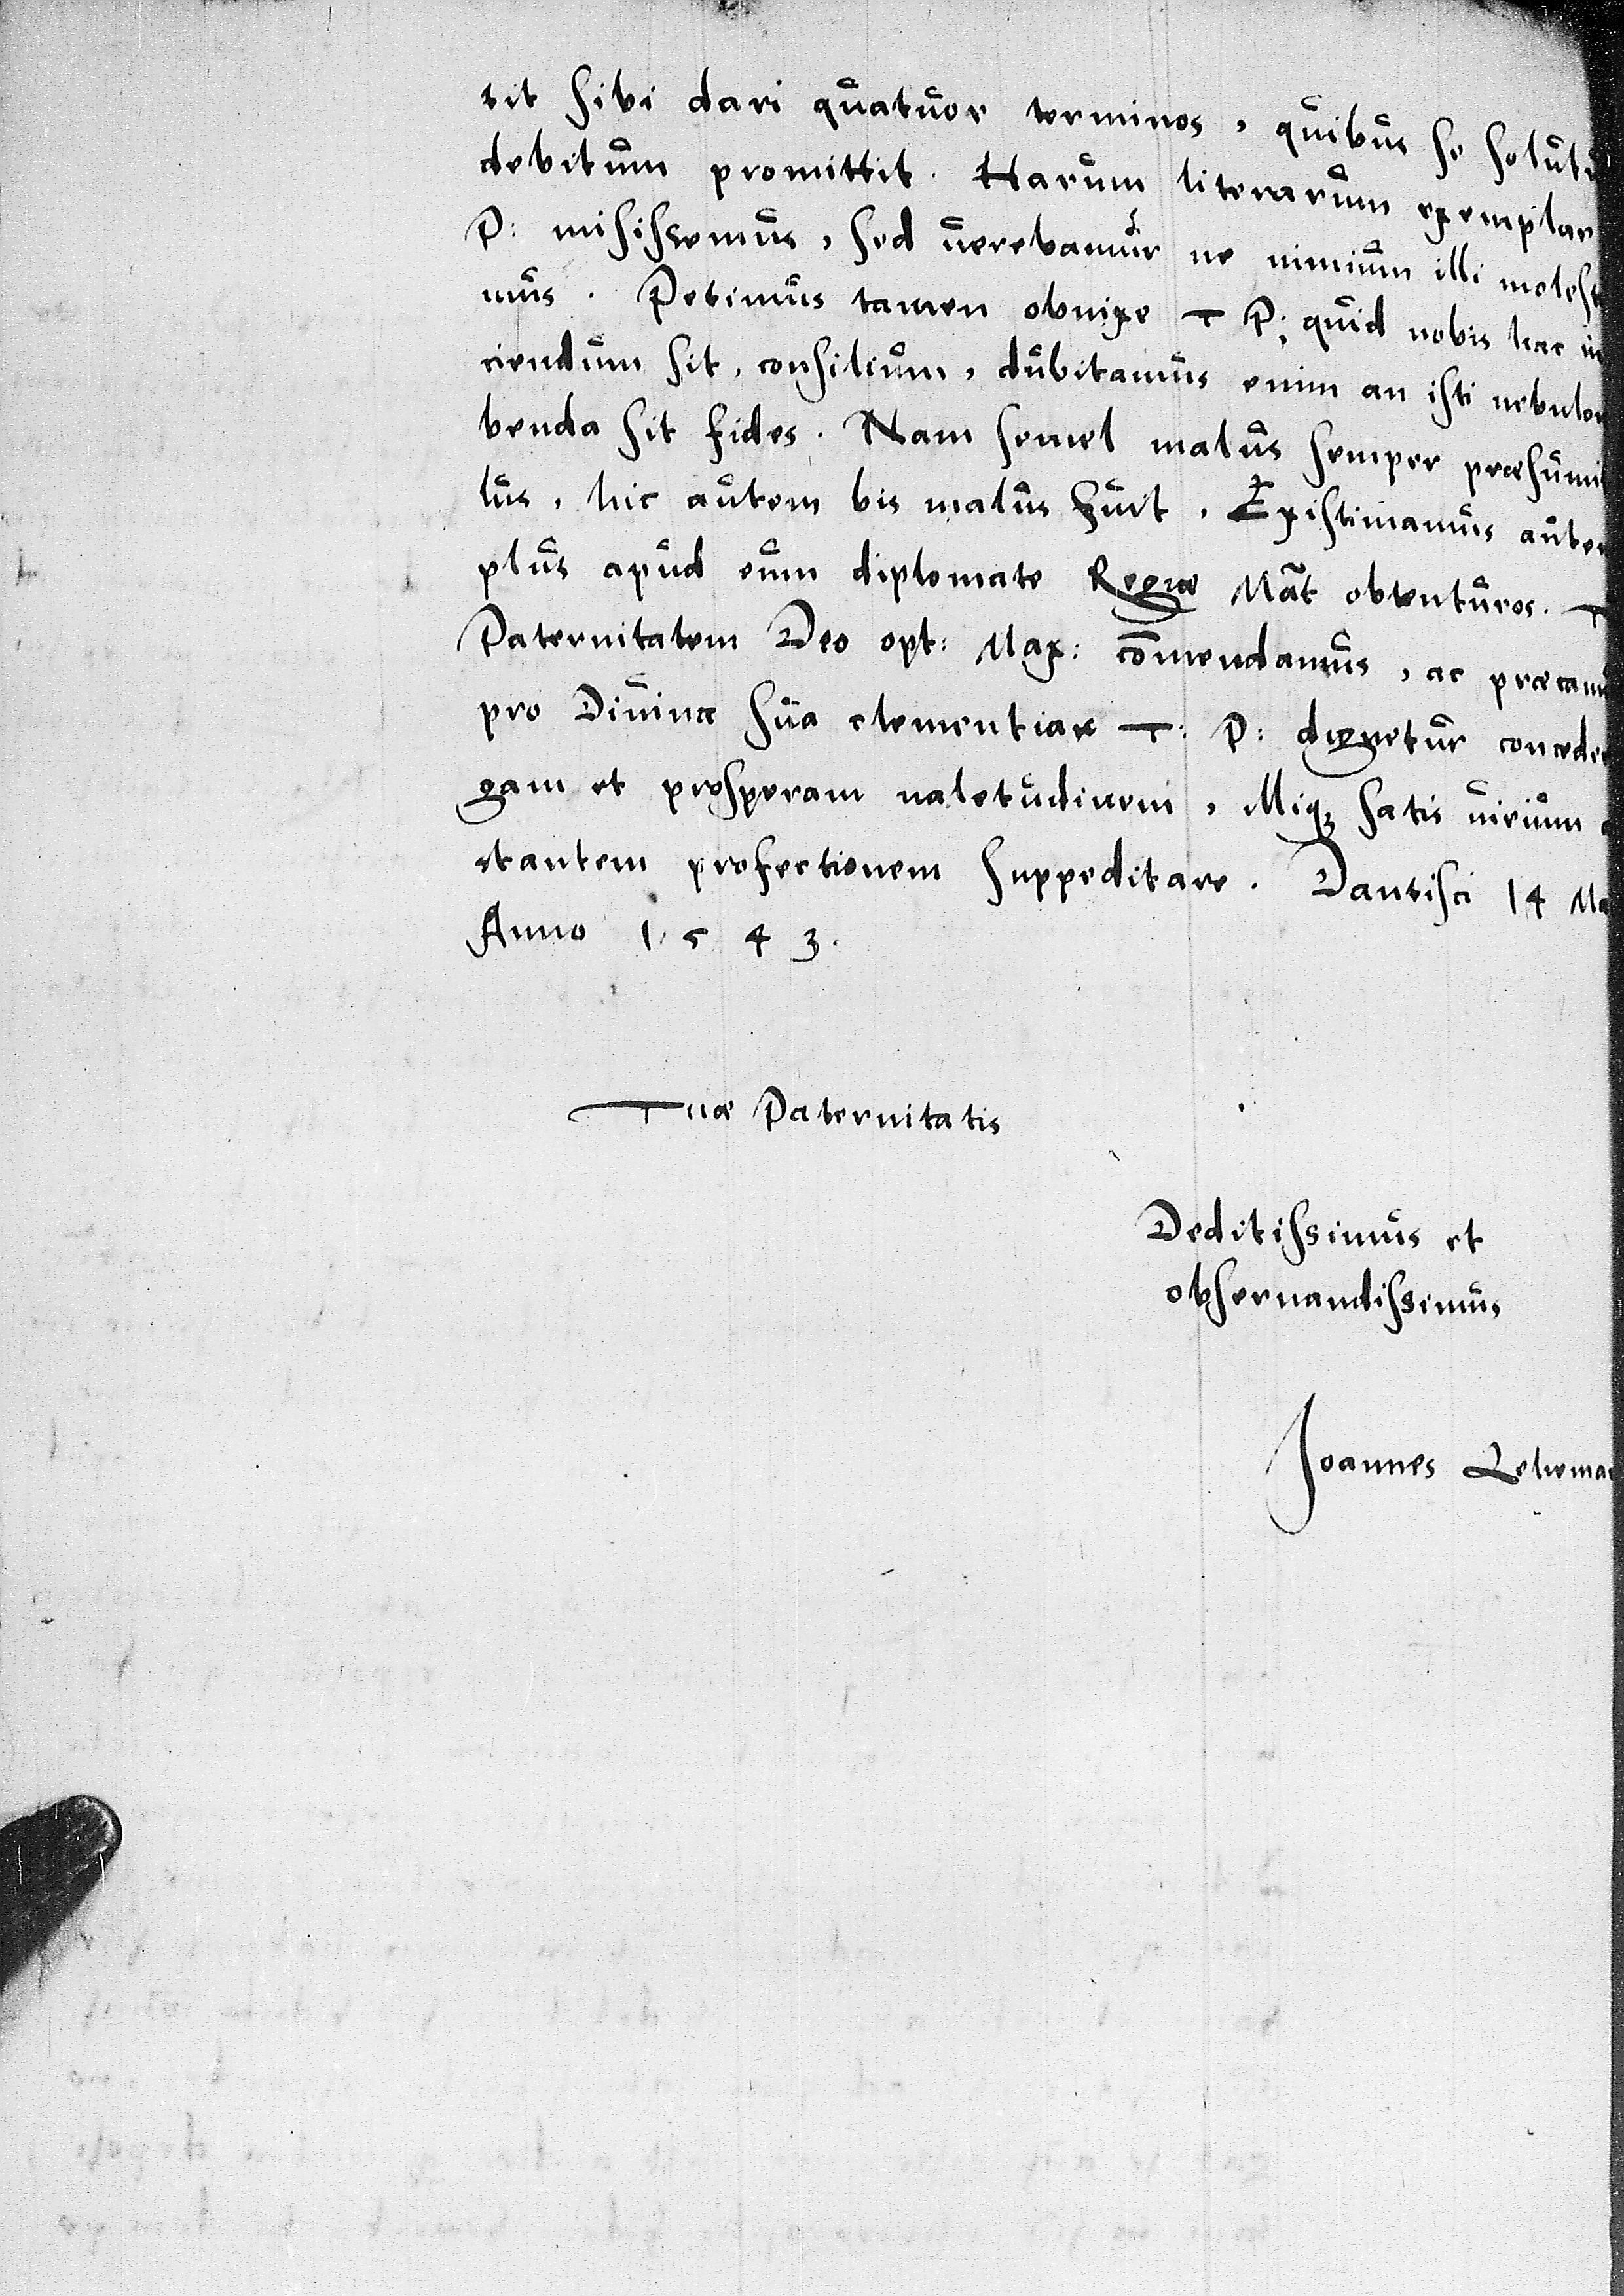 tit sibi dari quatuor terminos, quibus se solutu
debitum promittit. Harum literarum exemplar
P: misissemus, sed uerebamur ne nimium illi molest
mus. Petimus tamen obnixe T P: quid nobis hac in
ciendum sit, consilium, dubitamus enim an isti nebulon
benda sit fides. Nam semel malus semper præsumit
lus, hic autem bis malus fuit. Existimamus autem
plus apud eum diplomate Regiæ Mat̃ obtenturos. T
Paternitatem Deo opt: Max: com̄endamus, ac præcamu
pro Diuina sua clementia T: P: dignetur concede
gam et prosperam ualetudinem, illiq; satis uirium
stantem profectionem suppeditare. Dantisci 14 Ma
Anno 1543.
Tuæ Paternitatis
Deditissimus et
obseruandissimus
Joannes Lehema